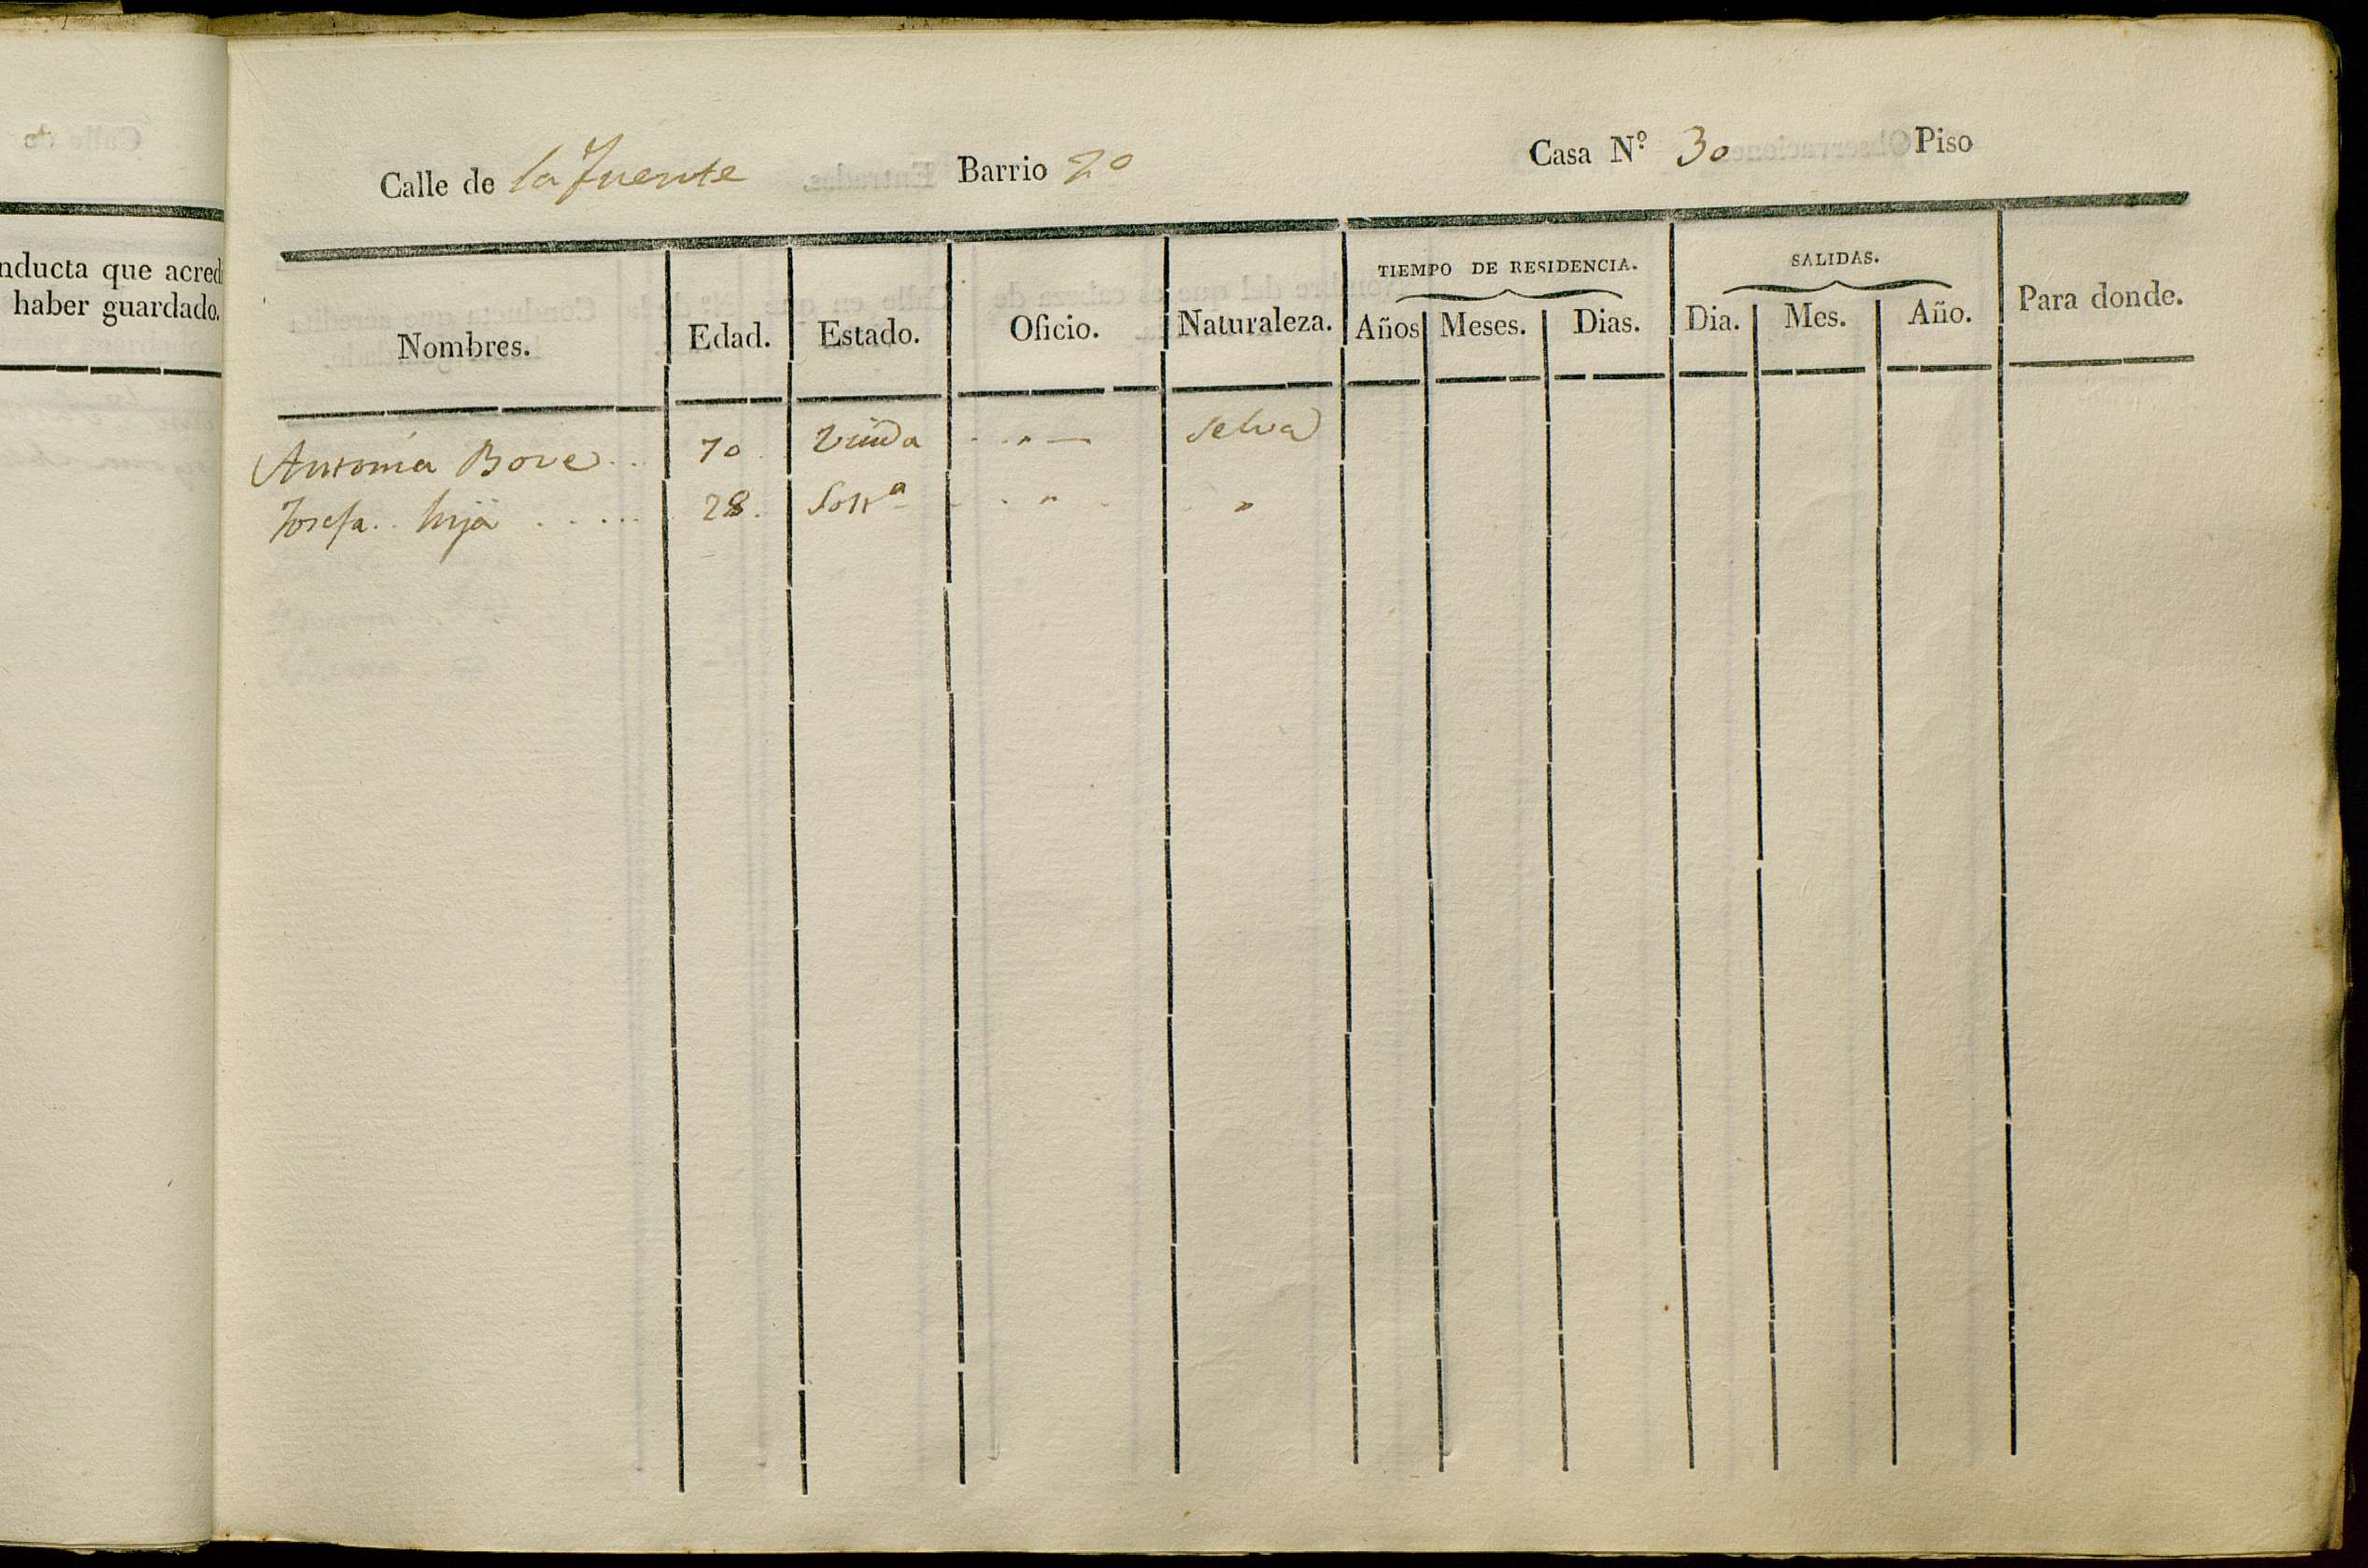 nducta que acred
haber guardado.
Calle de la fuente Barrio 2º Casa N.º 30 Piso
TIEMPO DE RESIDENCIA. SALIDAS.
Nombres. Edad. Estado. Oficio. Naturaleza. Años Meses. Dias. Dia. Mes. Año. Para donde.
Antonia Bove ... 70. Viuda . . " — Selva
Josefa .. hija ..... 28. Solt.ª - . " . "